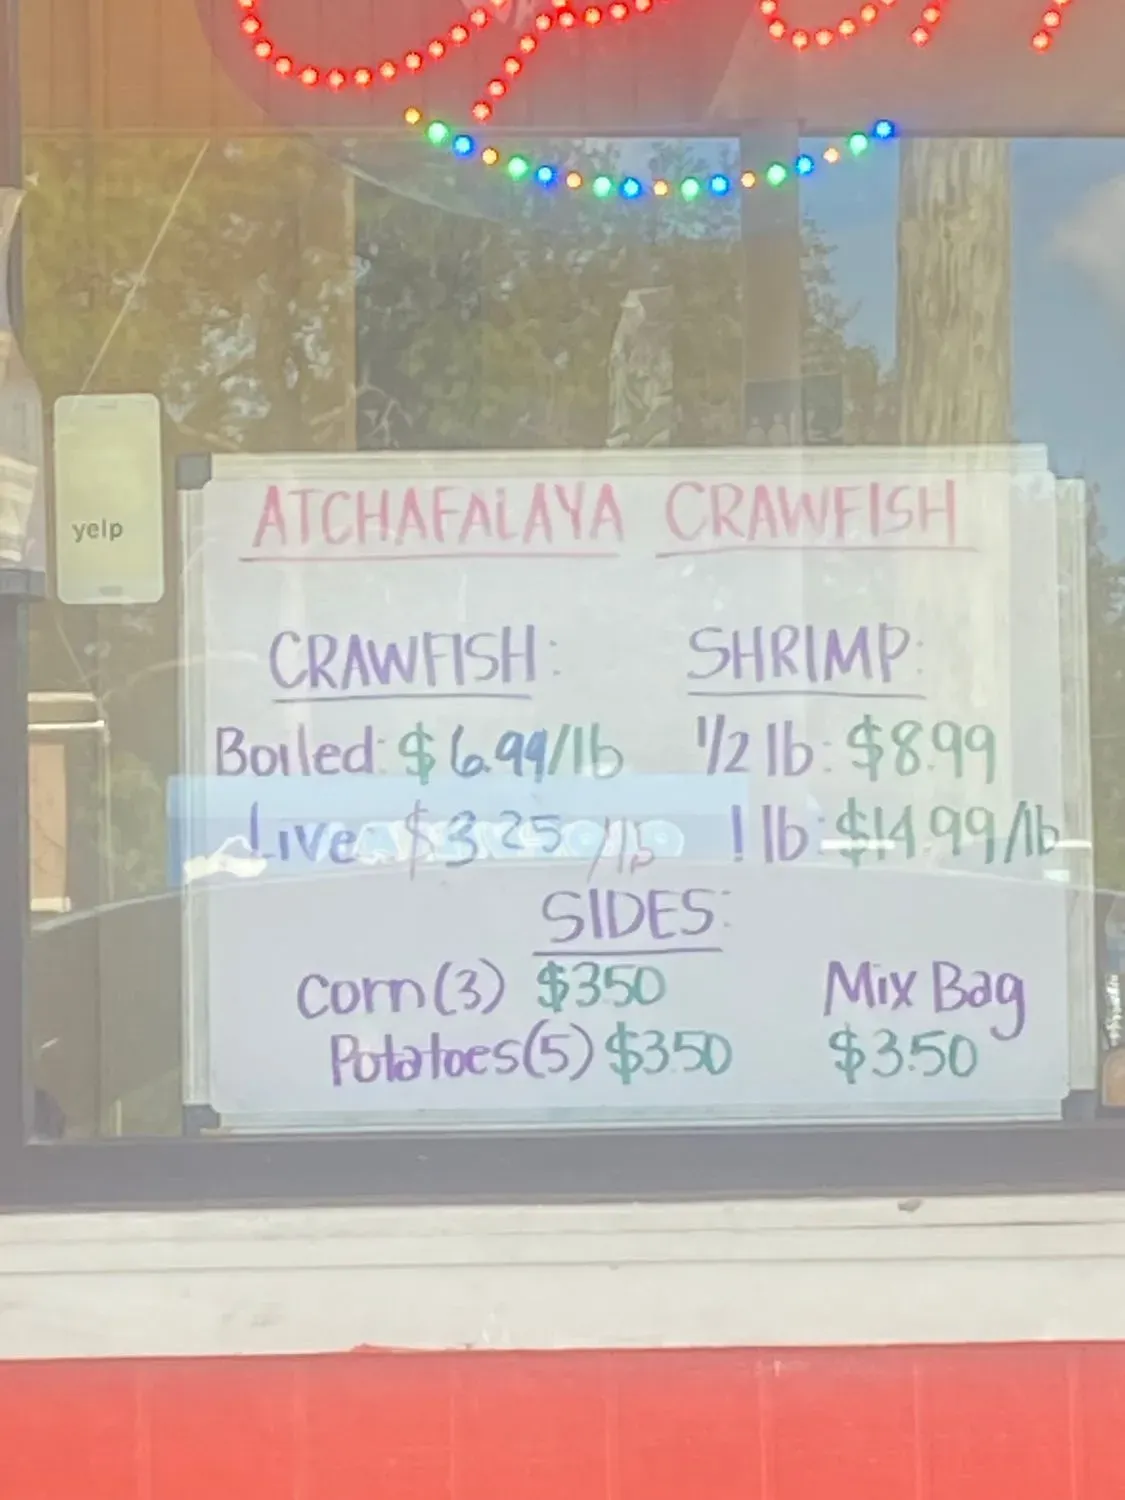 yelp
ATCHAFALAYA CRAWFISH
CRAWFISH: SHRIMP:
Boiled: $6.99/lb 1/2 lb: $8.99
Live: $3.25/lb 1 lb: $14.99/lb
SIDES:
Corn(3) $3.50 Mix Bag
Potatoes(5) $3.50 $3.50